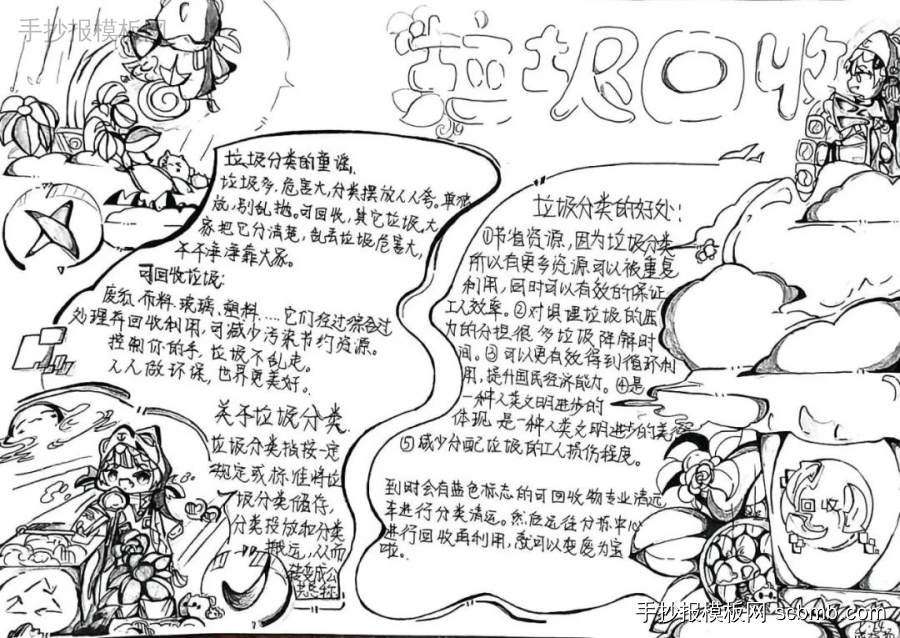 手抄报模板网
垃圾回收
垃圾分类的童谣
垃圾多,危害大,分类摆放人人夸。单独
放,别乱抛。可回收,其它垃圾,大
家把它分清楚,乱丢垃圾危害大,
干干净净靠大家。
可回收垃圾:
废纸、布料、玻璃、塑料....它们经过综合过
处理再回收利用,可减少污染节约资源。
控制你的手,垃圾不乱走。
人人做环保,世界更美好。
关于垃圾分类
垃圾分类指按一定
规定或标准将垃
圾分类储存,
分类投放和分类
搬运,从而
转变成公
共资
垃圾分类的好处:
①节省资源,因为垃圾分类
所以有更多资源可以被重复
利用,同时可以有效的保证
工人效率。②对填埋垃圾的压
力的分担很多垃圾降解时
间。③可以更有效得到循环利
用,提升国民经济能力。④是
一种人类文明进步的
体现是一种人类文明进步的
⑤减少分配垃圾的工人损伤程度。
到时会有蓝色标志的可回收物专业清运
车进行分类清运。然后运往分拣中心
进行回收再利用,就可以变废为宝
啦。
回收
手抄报模板网 - scbmb.com